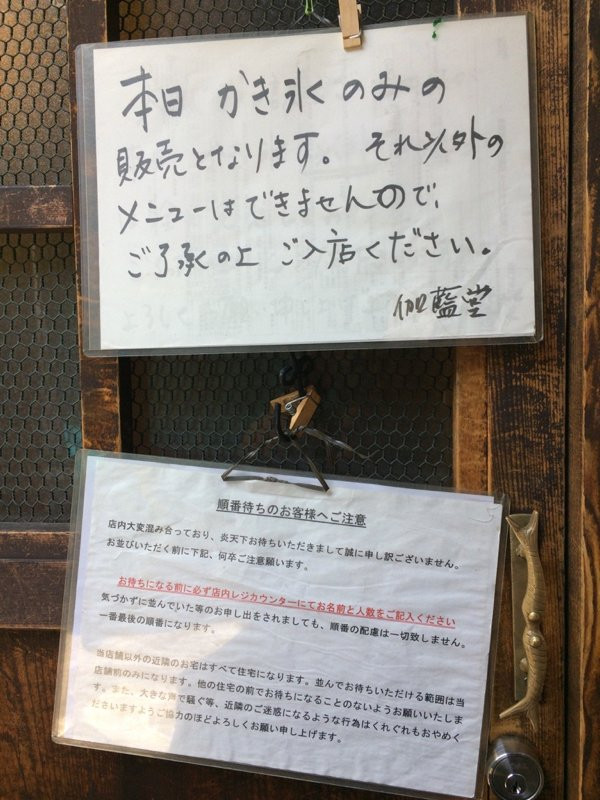 本日 かき氷のみの
販売となります。それ以外の
メニューはできませんので、
ご了承の上 ご入店ください。
伽藍堂
順番待ちのお客様へご注意
店内大変混み合っており、炎天下お待ちいただきまして誠に申し訳ございません。
お並びいただく前に下記、何卒ご注意願います。
お待ちになる前に必ず店内レジカウンターにてお名前と人数をご記入ください
気づかずに並んでいた等のお申し出をされましても、順番の配慮は一切致しません。
一番最後の順番になります。
当店舗以外の近隣のお宅はすべて住宅になります。並んでお待ちいただける範囲は当
店舗前のみになります。他の住宅の前でお待ちになることのないようお願いいたしま
す。また、大きな声で騒ぐ等、近隣のご迷惑になるような行為はくれぐれもおやめく
ださいますようご協力のほどよろしくお願い申し上げます。